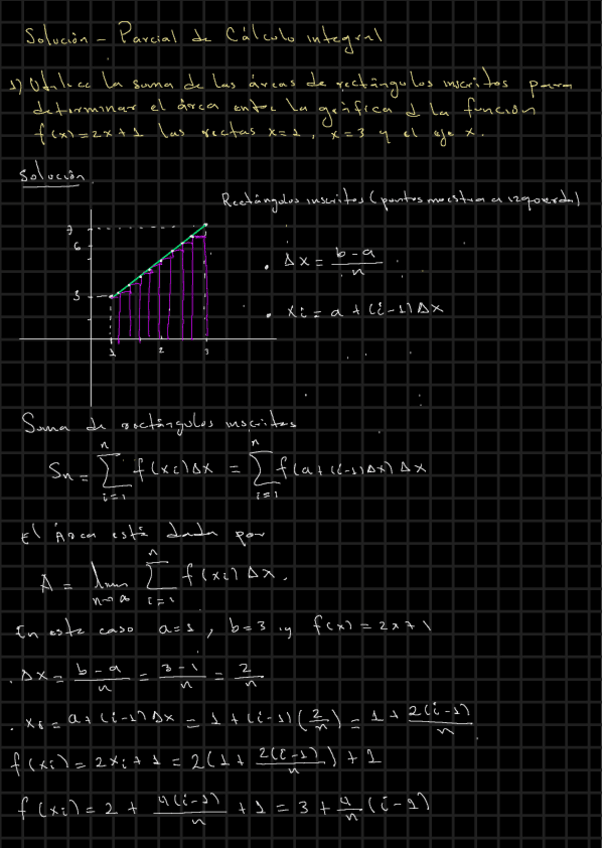 Solución - Parcial de Cálculo integral
1) Utilice la suma de las áreas de rectángulos inscritos para
determinar el área entre la gráfica d la función
f(x) = 2x + 1 las rectas x = 1, x = 3 y el eje x.
Solución
Rectángulos inscritos (puntos muestra a izquierda)
7
6
3
1 2 3
• Δx = (b - a)/n
• xi = a + (i - 1)Δx
Suma de rectángulos inscritos
Sn = ∑_{i=1}^{n} f(xi)Δx = ∑_{i=1}^{n} f(a + (i-1)Δx)Δx
El Área está dada por
A = lim_{n→∞} ∑_{i=1}^{n} f(xi)Δx.
En este caso a = 1, b = 3 y f(x) = 2x + 1
. Δx = (b - a)/n = (3 - 1)/n = 2/n
. xi = a + (i - 1)Δx = 1 + (i - 1)(2/n) = 1 + 2(i - 1)/n
f(xi) = 2xi + 1 = 2(1 + 2(i - 1)/n) + 1
f(xi) = 2 + 4(i - 1)/n + 1 = 3 + 4/n (i - 1)